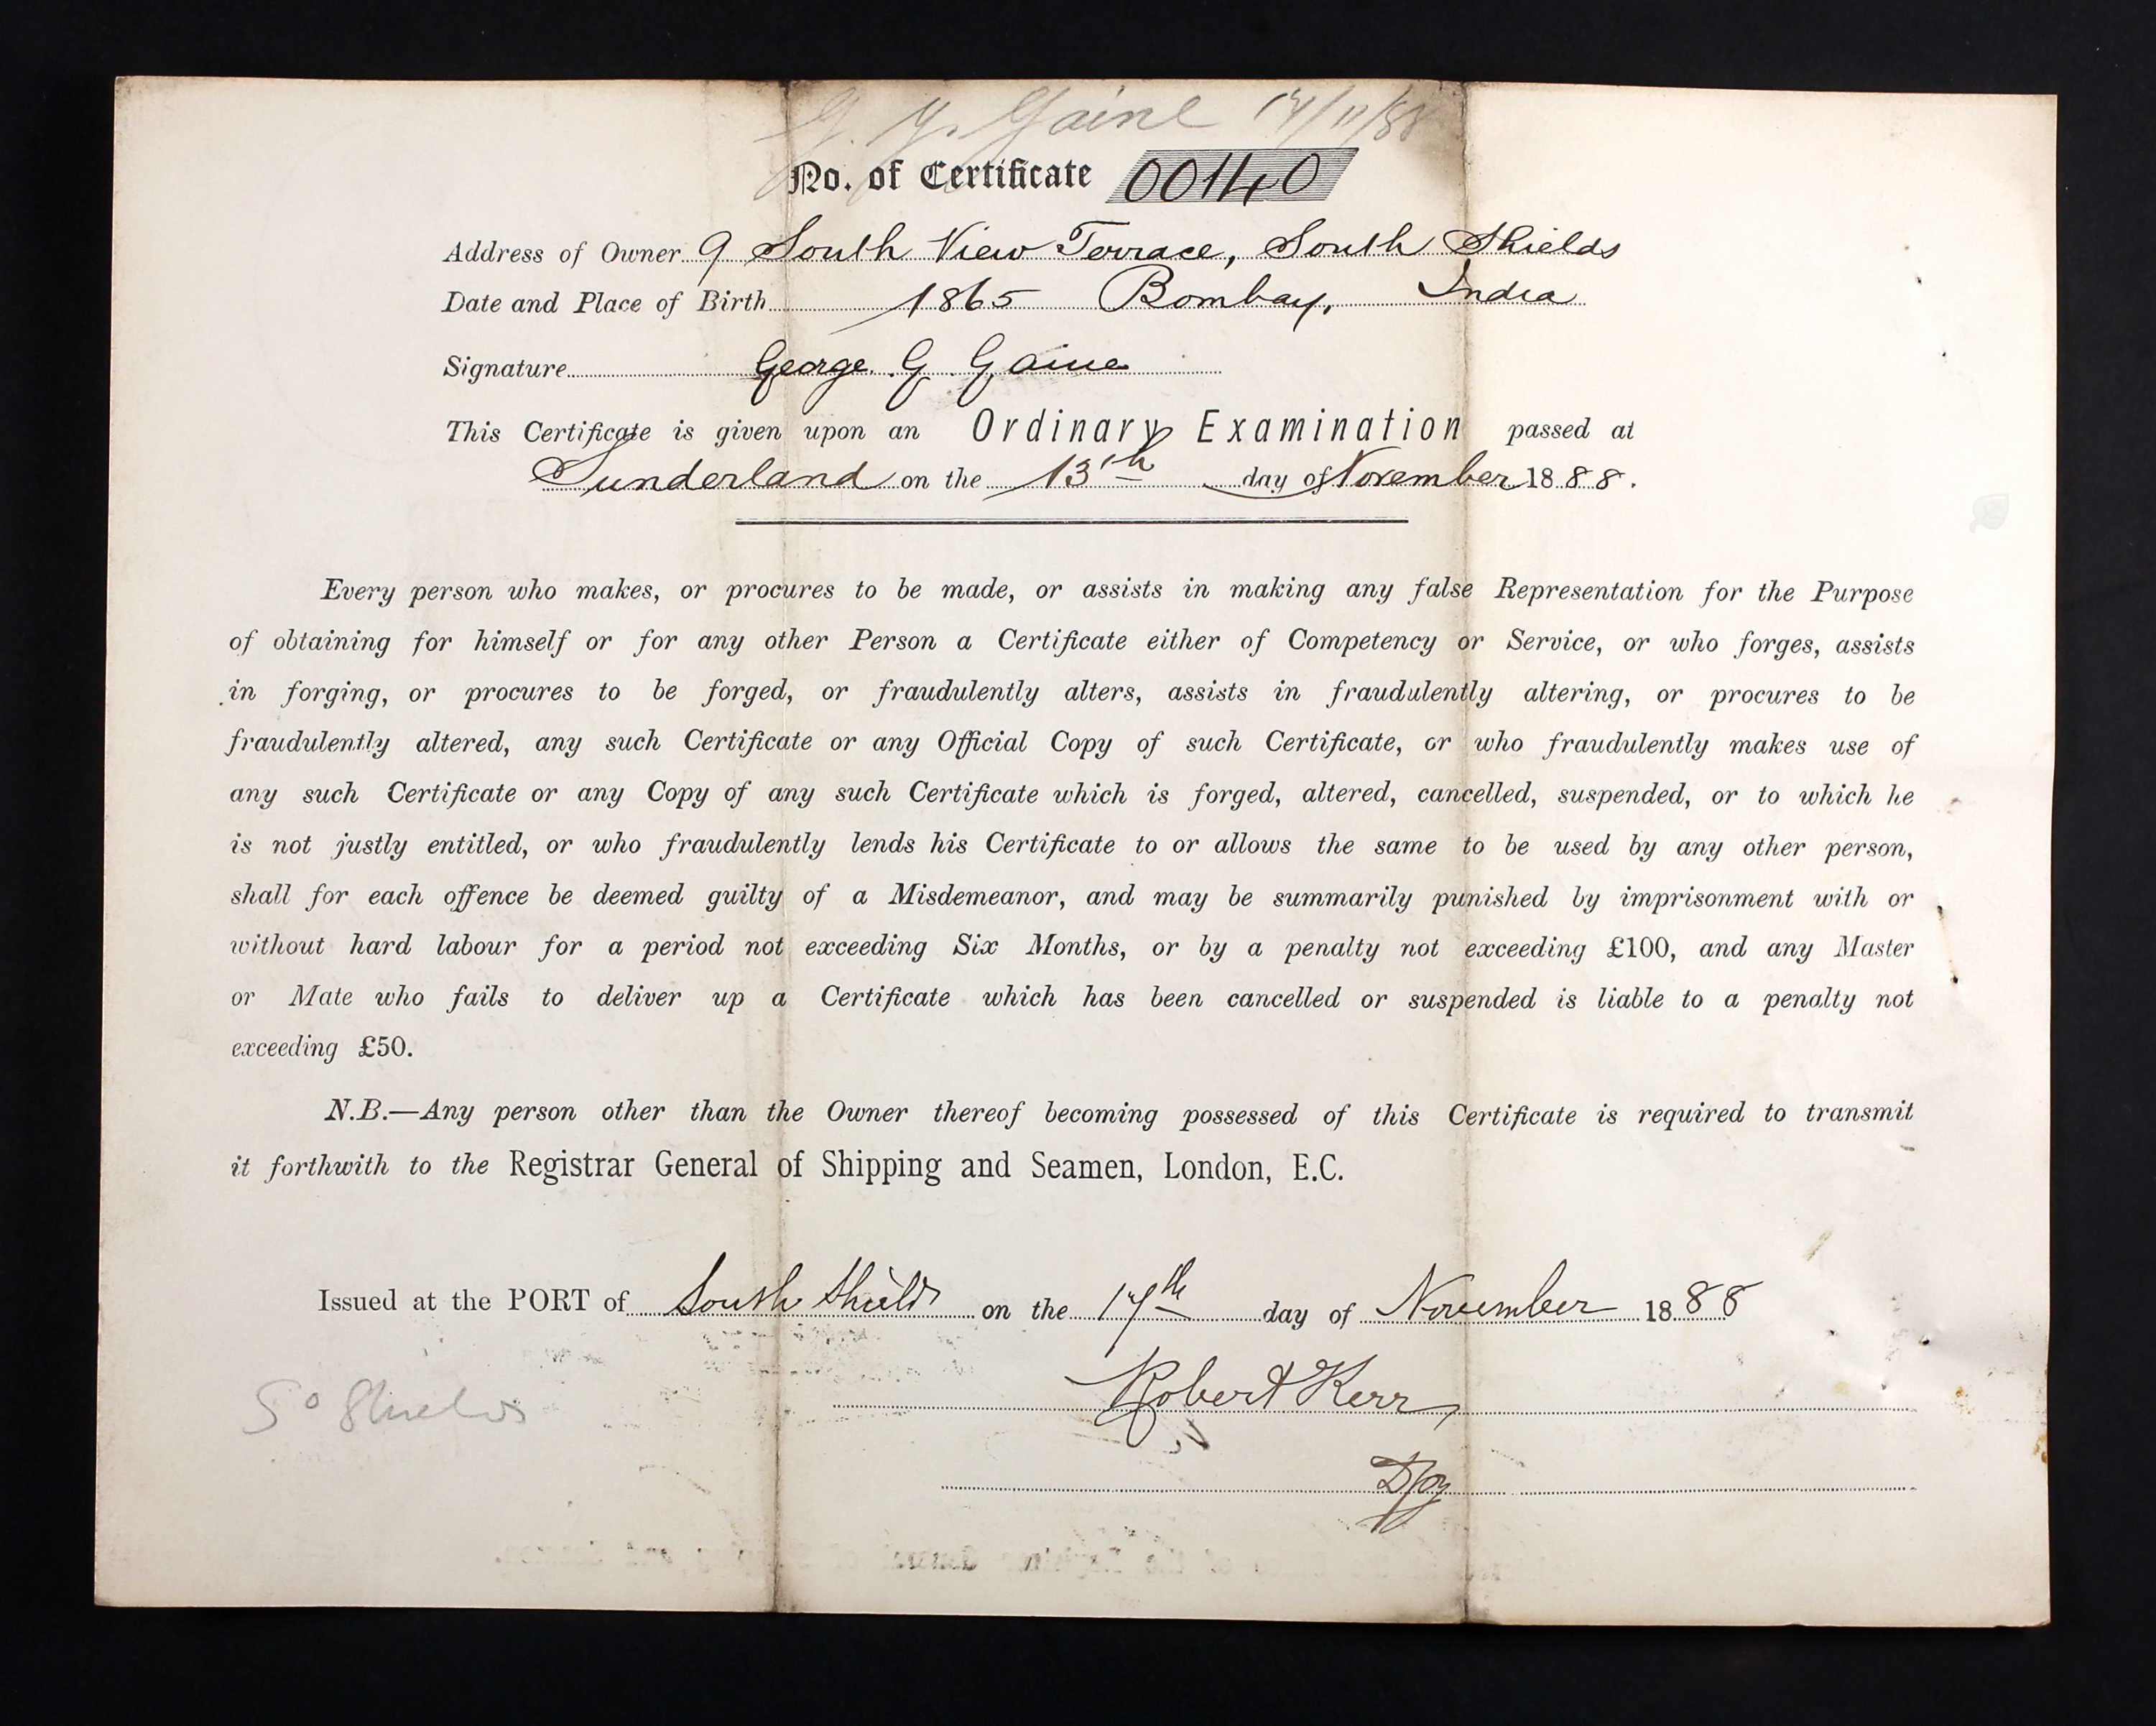 G. G. Gaine 17/11/88
No. of Certificate 00140
Address of Owner 9 South View Terrace, South Shields
Date and Place of Birth 1865 Bombay, India
Signature George G Gaine
This Certificate is given upon an Ordinary Examination passed at
Sunderland on the 13th day of November 1888.
Every person who makes, or procures to be made, or assists in making any false Representation for the Purpose
of obtaining for himself or for any other Person a Certificate either of Competency or Service, or who forges, assists
in forging, or procures to be forged, or fraudulently alters, assists in fraudulently altering, or procures to be
fraudulently altered, any such Certificate or any Official Copy of such Certificate, or who fraudulently makes use of
any such Certificate or any Copy of any such Certificate which is forged, altered, cancelled, suspended, or to which he
is not justly entitled, or who fraudulently lends his Certificate to or allows the same to be used by any other person,
shall for each offence be deemed guilty of a Misdemeanor, and may be summarily punished by imprisonment with or
without hard labour for a period not exceeding Six Months, or by a penalty not exceeding £100, and any Master
or Mate who fails to deliver up a Certificate which has been cancelled or suspended is liable to a penalty not
exceeding £50.
N.B.—Any person other than the Owner thereof becoming possessed of this Certificate is required to transmit
it forthwith to the Registrar General of Shipping and Seamen, London, E.C.
Issued at the PORT of South Shields on the 17th day of November 1888
Robert Kerr
So Shields
Dpy